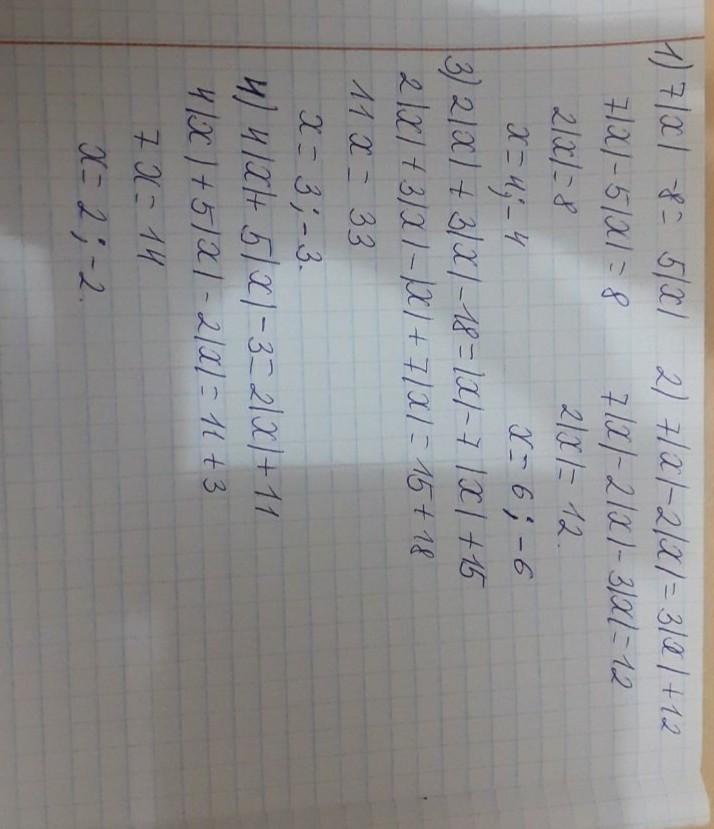 1) 7|x| -8 = 5|x|
7|x| - 5|x| = 8
2|x| = 8
x = 4; -4
2) 7|x| - 2|x| = 3|x| + 12
7|x| - 2|x| - 3|x| = 12
2|x| = 12.
x = 6; -6
3) 2|x| + 3|x| - 18 = |x| - 7|x| + 15
2|x| + 3|x| - |x| + 7|x| = 15 + 18
11x = 33
x = 3; -3.
4) 4|x| + 5|x| - 3 = 2|x| + 11
4|x| + 5|x| - 2|x| = 11 + 3
7x = 14
x = 2; -2.